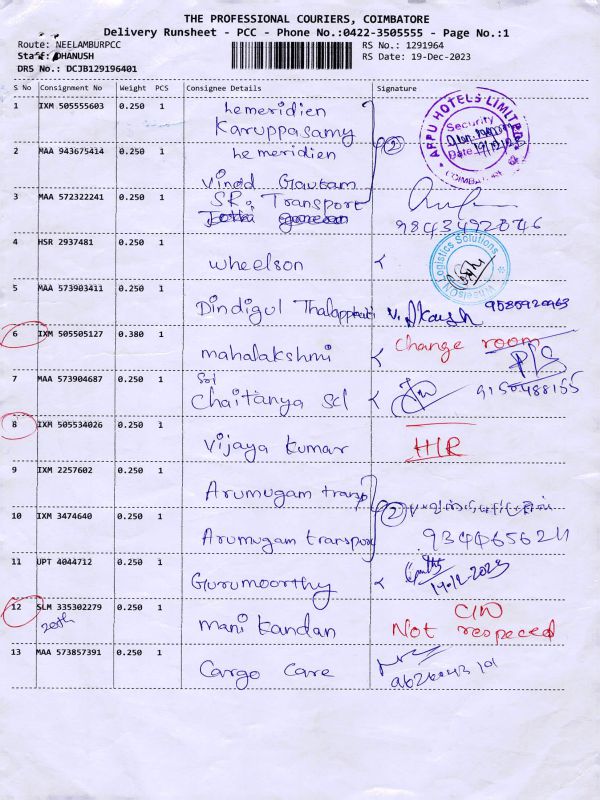 THE PROFESSIONAL COURIERS, COIMBATORE
Delivery Runsheet - PCC - Phone No.:0422-3505555 - Page No.:1
Route: NEELAMBURPCC RS No.: 1291964
Staff: DHANUSH RS Date: 19-Dec-2023
DRS No.: DCJB129196401
S No Consignment No Weight PCS Consignee Details Signature
1 IXM 505555603 0.250 1 Lemeridien
Karuppasamy
APPU HOTELS LIMITED
Security
Date 19/12/23
COIMBATORE
2 MAA 943675414 0.250 1 Lemeridien 2
Vinod Gautam
3 MAA 572322241 0.250 1 SR. Transport
9843492046
4 HSR 2937481 0.250 1 Wheelson
WheelsON Logistics Solutions
5 MAA 573903411 0.250 1 Dindigul Thalappakatti V. Akash 9585920963
6 IXM 505505127 0.380 1 mahalakshmi Change room
P/S
7 MAA 573904687 0.250 1 Sri Chaitanya Scl 9150488155
8 IXM 505534026 0.250 1 Vijaya Kumar H/R
9 IXM 2257602 0.250 1 Arumugam transp
10 IXM 3474640 0.250 1 Arumugam transport 2
11 UPT 4044712 0.250 1 Gurumoorthy 19-12-2023
12 SLM 335302279 0.250 1 mani kandan C/N
Not respeced
13 MAA 573857391 0.250 1 Cargo Care